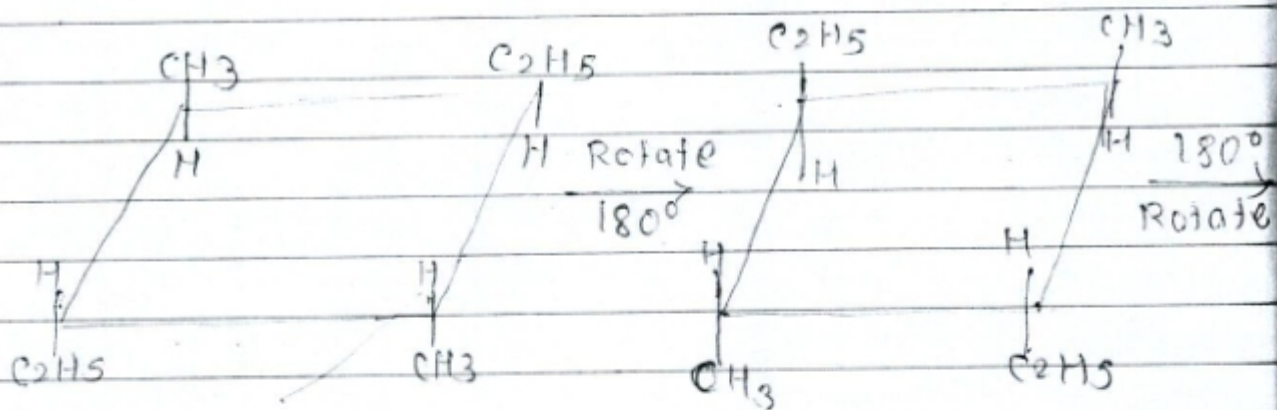 CH3 C2H5 C2H5 CH3
H H H H
Rotate 180°
180° Rotate
H H H H
C2H5 CH3 CH3 C2H5